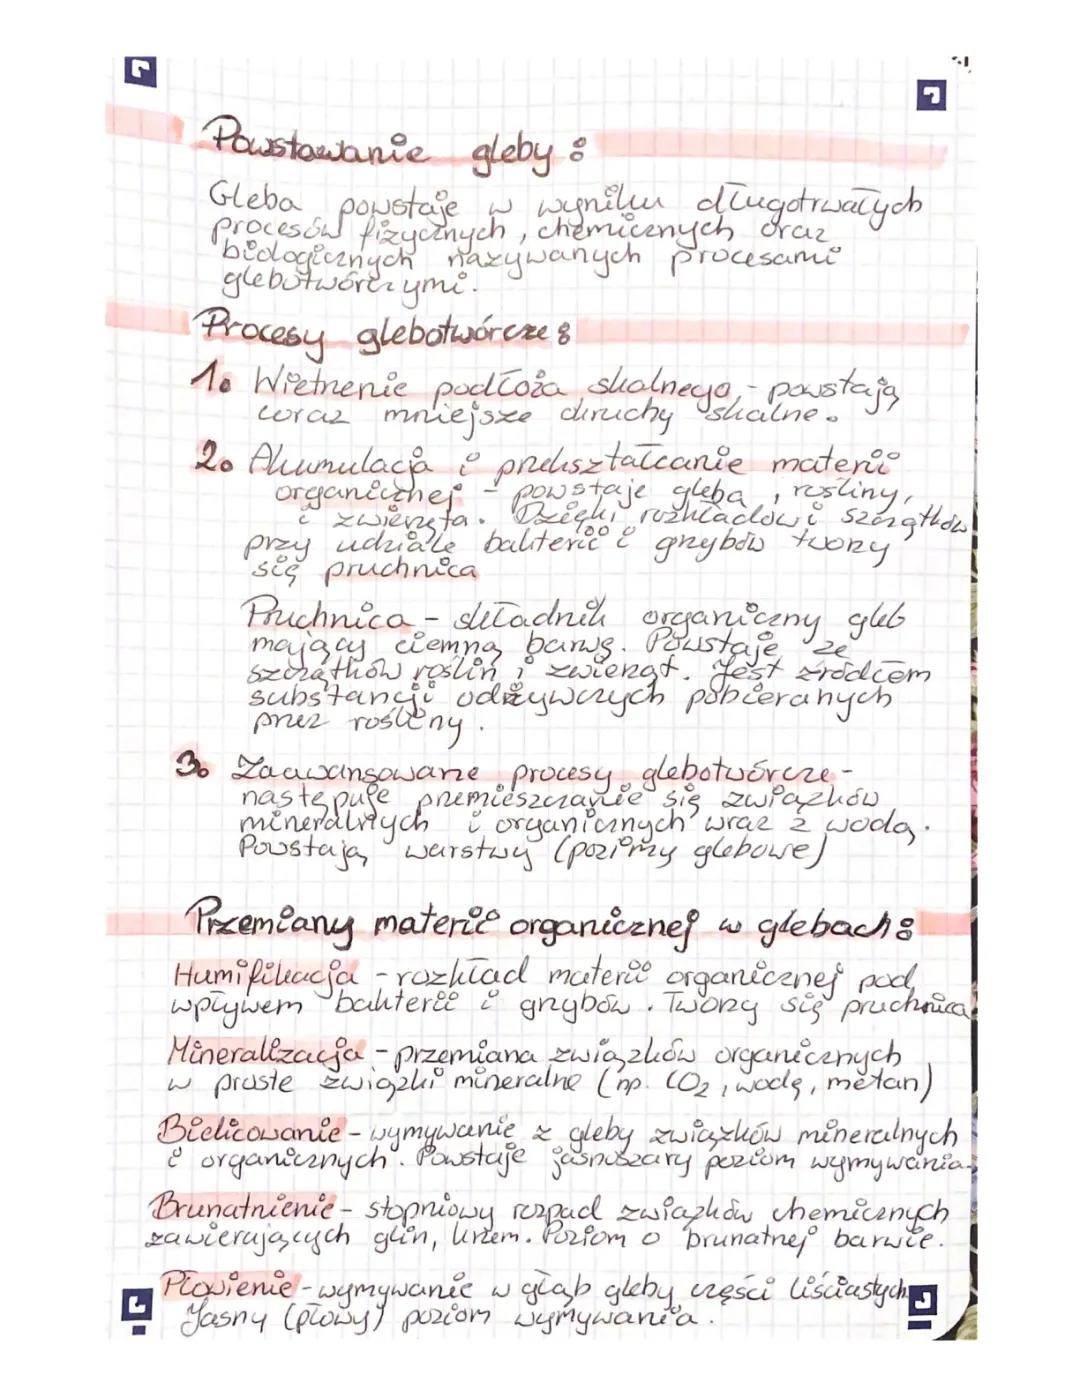 Powstawanie gleby:
Gleba powstaje w wyniku długotrwałych
procesów fizycznych, chemicznych oraz
biologicznych nazywanych procesami
glebotwórczymi.
Procesy glebotwórcze:
1. Wietrzenie podłoża skalnego - powstają
coraz mniejsze okruchy skalne.
2. Akumulacja i przekształcanie materii
organicznej - powstaje gleba, rośliny,
i zwierzęta. Dzięki rozkładowi szczątków
przy udziale bakterii i grzybów tworzy
się pruchnica
Pruchnica - składnik organiczny gleb
mający ciemną barwę. Powstaje ze
szczątków roślin i zwierząt. Jest źródłem
substancji odżywczych pobieranych
przez rośliny.
3. Zaawansowane procesy glebotwórcze -
następuje przemieszczanie się związków
mineralnych i organicznych wraz z wodą.
Powstają warstwy (poziomy glebowe)
Przemiany materii organicznej w glebach:
Humifikacja - rozkład materii organicznej pod
wpływem bakterii i grzybów. Tworzy się pruchnica
Mineralizacja - przemiana związków organicznych
w proste związki mineralne (np. CO2, wodę, metan)
Bielicowanie - wymywanie z gleby związków mineralnych
i organicznych. Powstaje jasnoszary poziom wymywania.
Brunatnienie - stopniowy rozpad związków chemicznych
zawierających glin, krzem. Poziom o brunatnej barwie.
Płowienie - wymywanie w głąb gleby części liściastych.
Jasny (płowy) poziom wymywania.